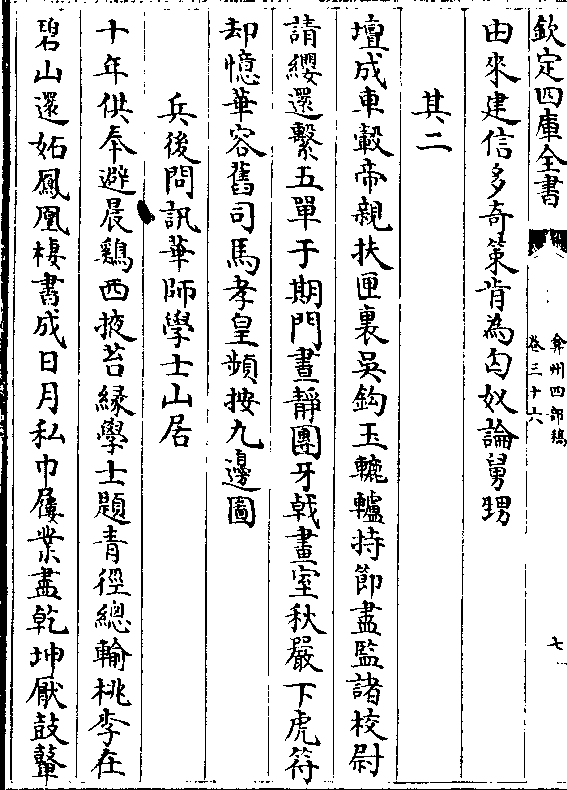 欽定四庫全書
弇州四部稿
卷三十六
七
由來建信多奇策肯為匈奴論舅甥
其二
壇成車轂帝親扶匣裏吳鈎玉轆轤持節盡監諸校尉
請纓還繫五單于期門晝靜團牙戟畫室秋嚴下虎符
却憶華容舊司馬孝皇頻按九邊圖
兵後問訊華師學士山居
十年供奉避晨鷄西掖苔緣學士題青徑總輸桃李在
碧山還妬鳳凰棲書成日月私巾屨業盡乾坤厭鼓鼙